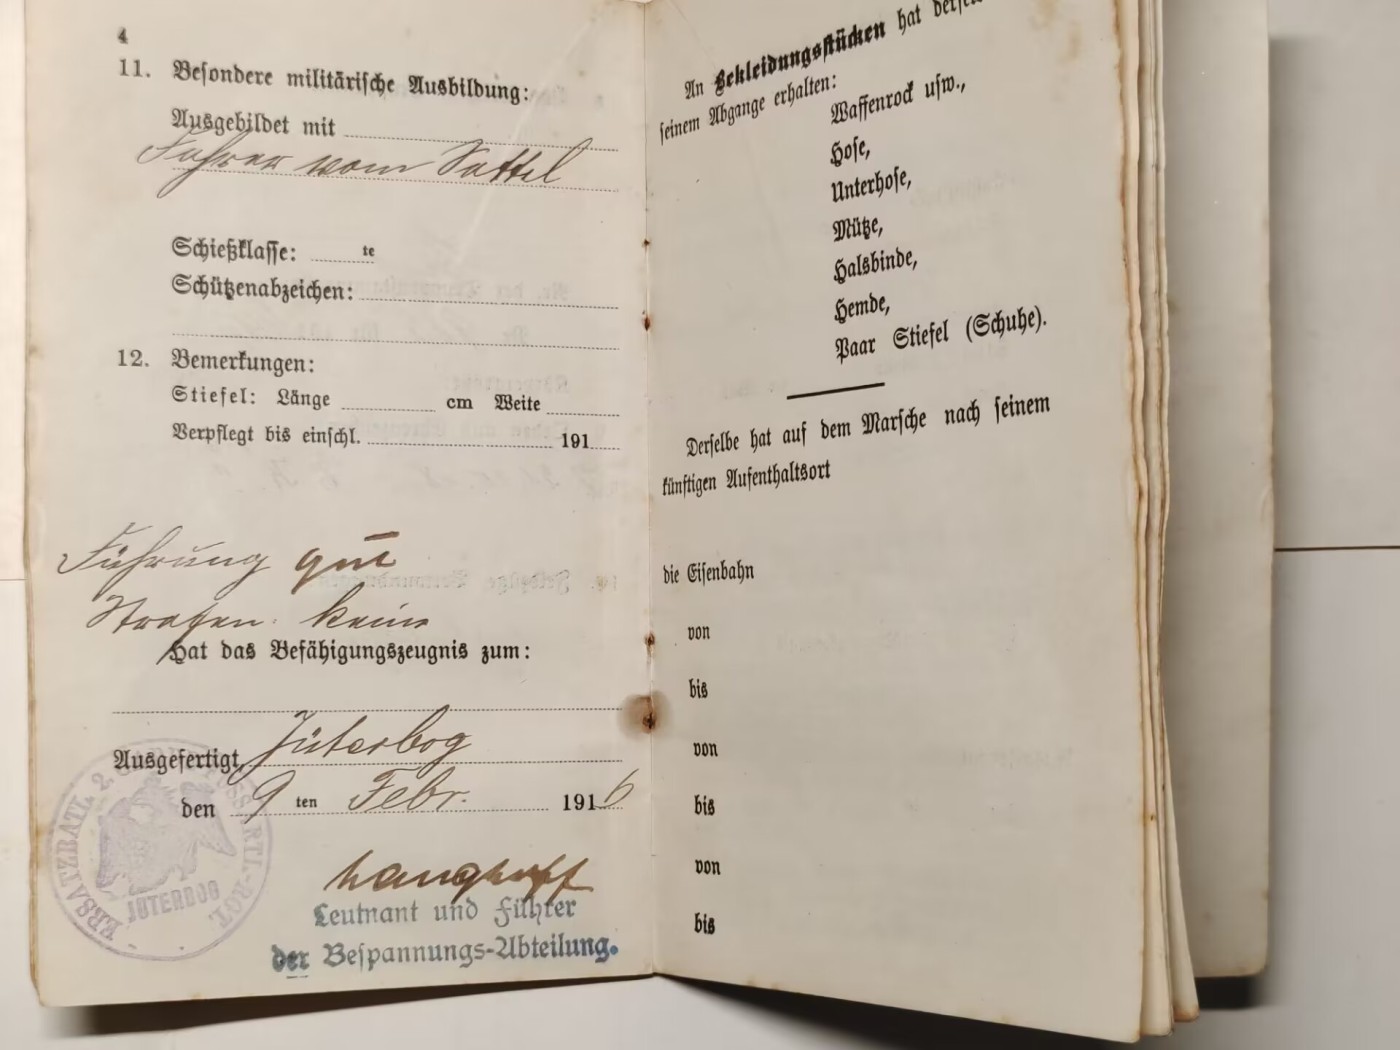 4
11. Besondere militärische Ausbildung:
Ausgebildet mit
Fahrer vom Sattel
Schießklasse: te
Schützenabzeichen:
12. Bemerkungen:
Stiefel: Länge cm Weite
Verpflegt bis einschl. 191
Führung gut
Strafen: keine
Hat das Befähigungszeugnis zum:
Ausgefertigt, Jüterbog
den 9 ten Febr. 1916
Langhoff
Leutnant und Führer
der Bespannungs-Abteilung.
ERSATZBATL. 2. RGT.
JÜTERBOG
An Bekleidungsstücken hat
seinem Abgange erhalten:
Waffenrock usw.,
Hose,
Unterhose,
Mütze,
Halsbinde,
Hemde,
Paar Stiefel (Schuhe).
Derselbe hat auf dem Marsche nach seinem
künftigen Aufenthaltsort
die Eisenbahn
von
bis
von
bis
von
bis